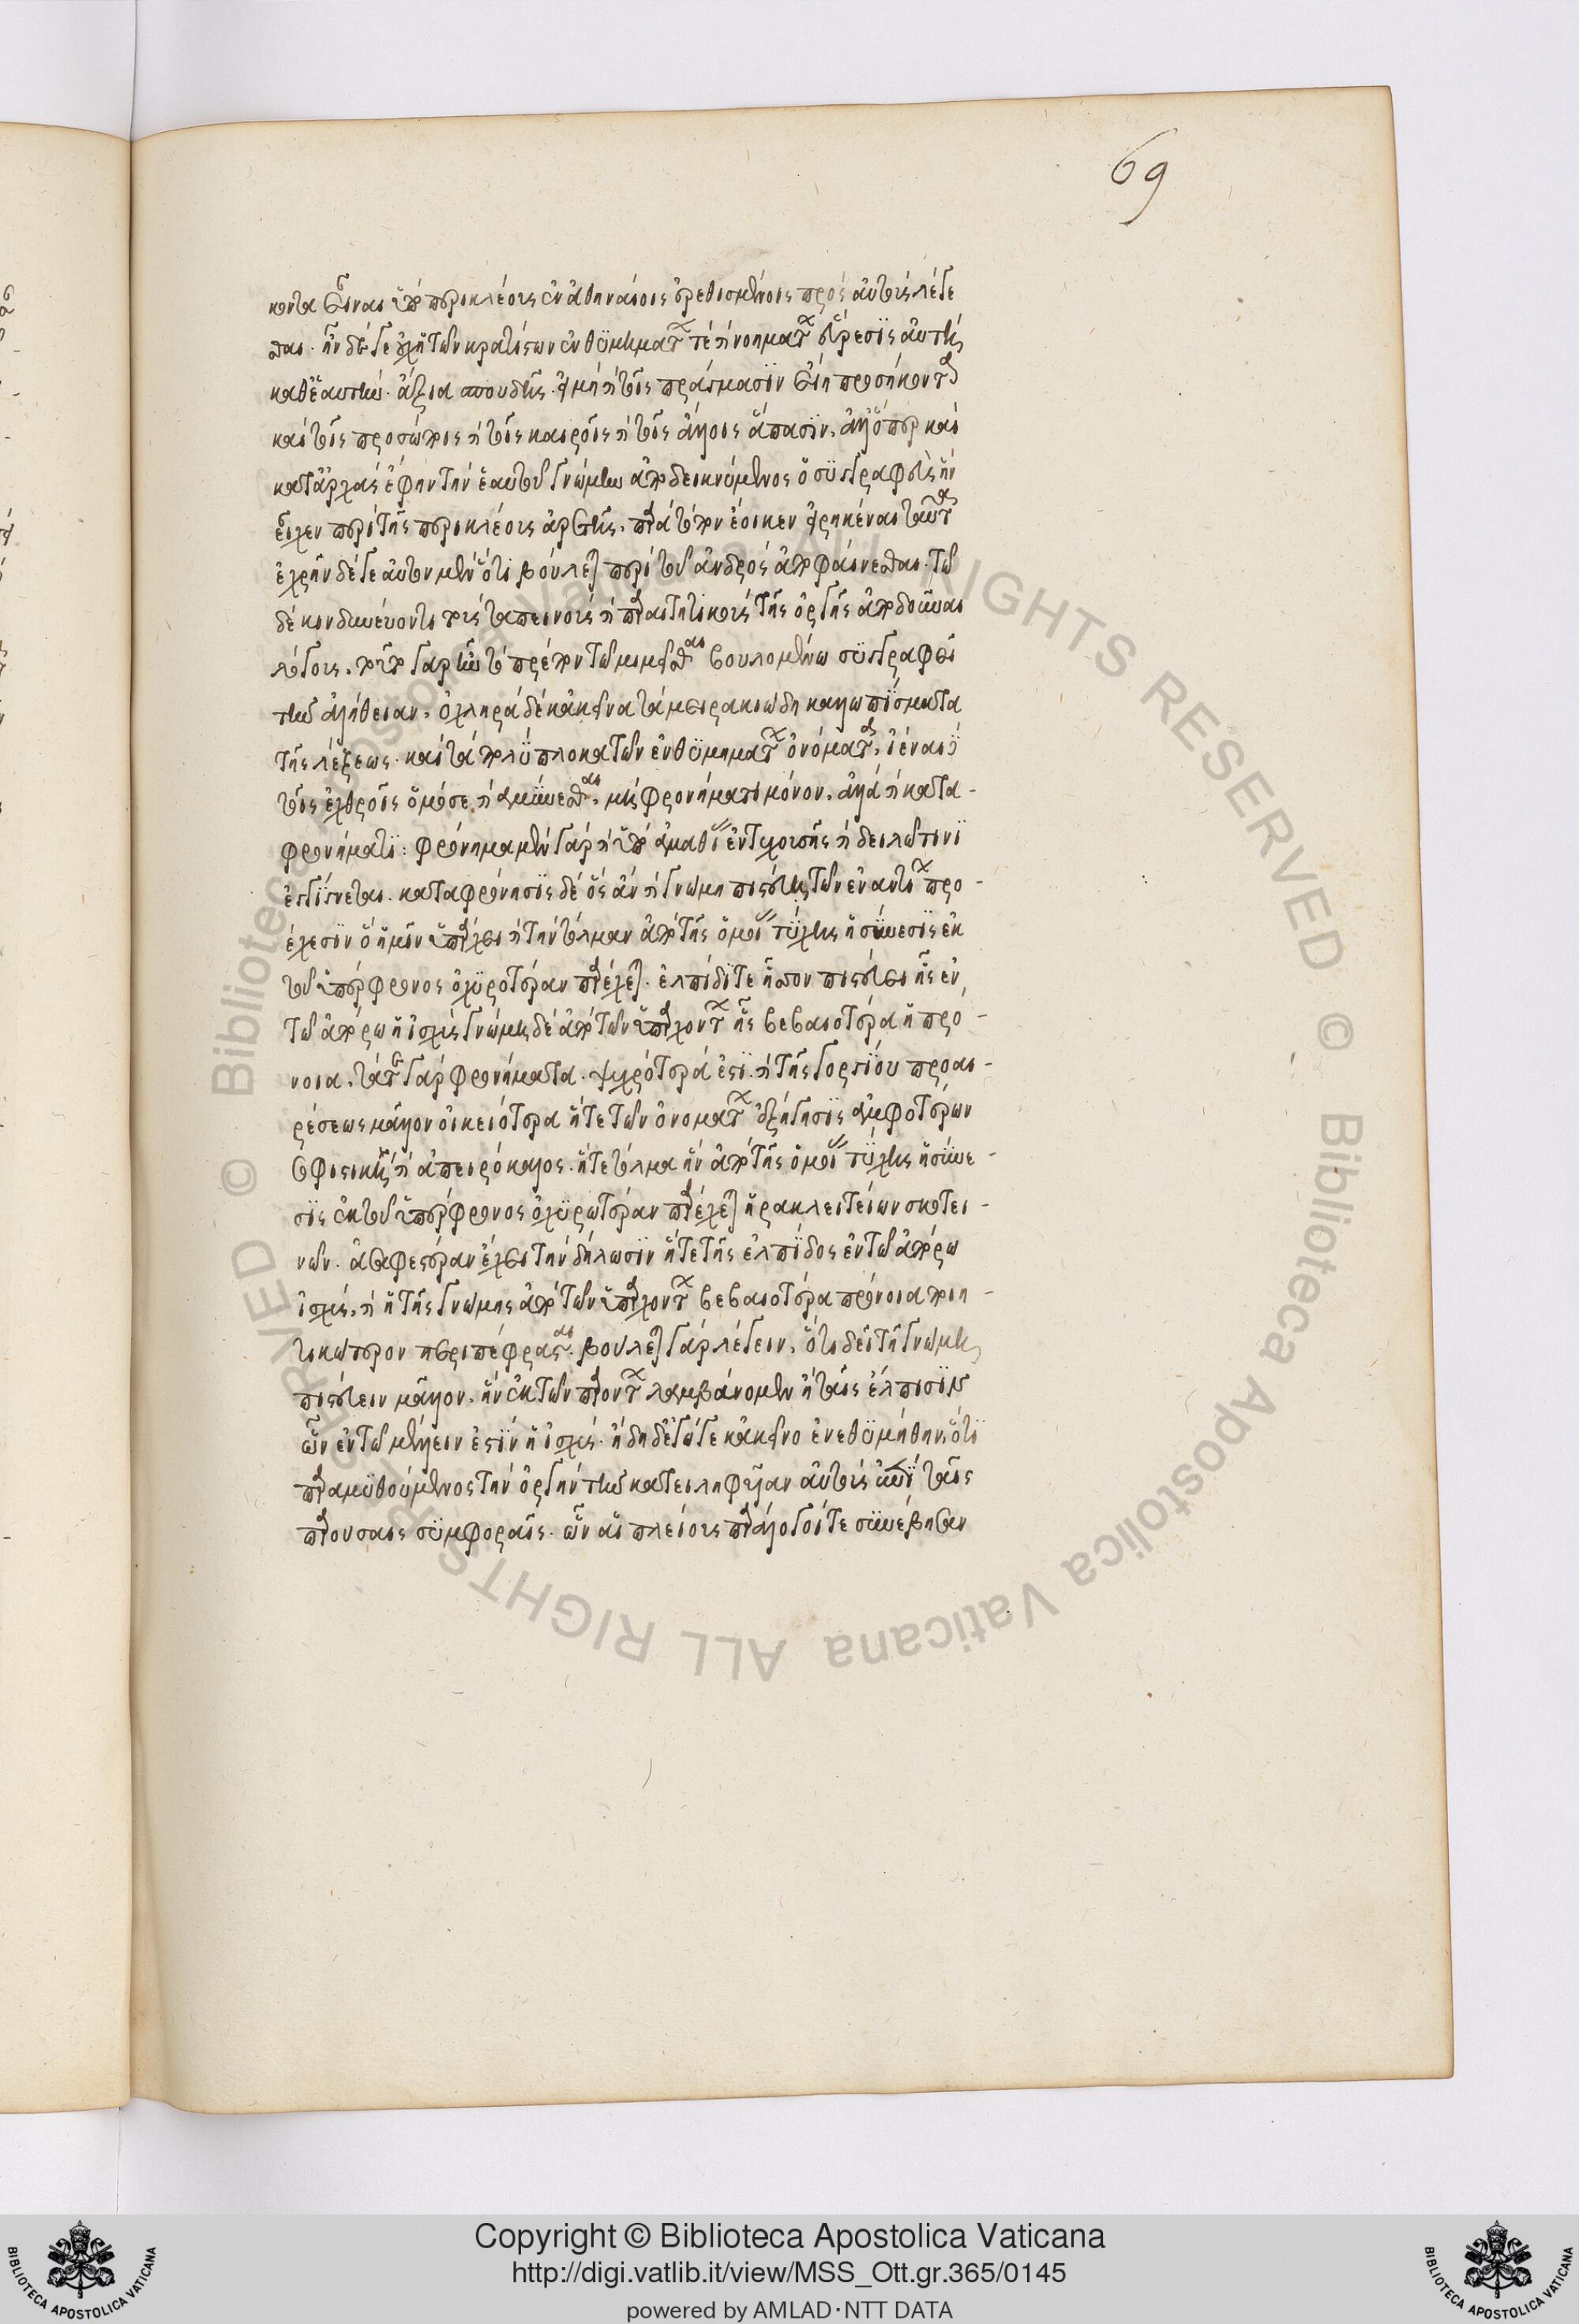 κοντα εἶναι ὑπὸ περικλέους ἐν ἀθηναίοις ἠρεθισμένοις πρὸς αὐτοὺς λέγε
σθαι. ἦν δέ γε οὐχ ἡ τῶν κρατίστων ἐνθϋμημάτων τὲ καὶ νοημάτων εὕρεσϊς αὐτὴ
καθ' ἑαυτὴν. ἀξία σπουδῆς. εἰ μὴ καὶ τοῖς πράγμασϊν εἴη προσήκοντα
καὶ τοῖς προσώποις καὶ τοῖς καιροῖς καὶ τοῖς ἄλλοις ἅπασϊν. ἀλλ' ὅπερ καὶ
κατ' ἀρχὰς ἔφην τὴν ἑαυτοῦ γνώμην ἀποδεικνύμενος ὁ συγγραφεὺς ἣν
εἶχεν περὶ τῆς περικλέους ἀρετῆς. παρὰ τόπον ἔοικεν εἰρηκέναι ταῦτα
ἐχρῆν δέ γε αὐτὸν μὲν ὅτι βούλεται περὶ τοῦ ἀνδρὸς ἀποφαίνεσθαι. τῶ
δὲ κινδυνεύοντι τοὺς ταπεινοὺς καὶ παραιτητικοὺς τῆς ὀργῆς ἀποδοῦναι
λόγους. τοῦτο γὰρ ἦν τὸ πρέπον τῶ μιμεῖσθαι βουλομένω συγγραφεῖ
τὴν ἀλήθειαν. ὀχληρὰ δὲ κἀκεῖνα τὰ μειρακιώδη καλλωπίσματα
τῆς λέξεως. καὶ τὰ πολύπλοκα τῶν ἐνθϋμημάτων ὀνόματα. ἰέναι
τοῖς ἐχθροῖς ὁμόσε καὶ ἀμύνεσθαι. μὴ φρονήματι μόνον. ἀλλὰ καὶ κατα-
φρονήματϊ: φρόνημα μὲν γὰρ καὶ ὑπὸ ἀμαθίας εὐτυχοῦσης καὶ δειλῶ τινὶ
ἐγγίγνεται. καταφρόνησϊς δὲ ὃς ἂν καὶ γνώμη πιστεύη τῶν ἐναντίων προ-
έχεσϊν ὃ ἡμῖν ὑπάρχει καὶ τὴν τόλμαν ἀπὸ τῆς ὁμοίας τύχης ἡ σύνεσϊς ἐκ
τοῦ ὑπέρφρονος ὀχϋροτέραν παρέχεται. ἐλπίδϊ τε ἧσσον πιστεύει ἧς ἐν
τῶ ἀπόρω ἡ ἰσχὺς γνώμη δὲ ἀπὸ τῶν ὑπαρχόντων ἧς βεβαιοτέρα ἡ πρό-
νοια. τά τε γὰρ φρονήματα. ψυχρότερά ἐστϊ. καὶ τῆς γοργίου προαι-
ρέσεως μᾶλλον οἰκειότερα ἥ τε τῶν ὀνομάτων ἐξήγησϊς ἀμφοτέρων
σοφιστικὴ καὶ ἀπειρόκαλος. ἥ τε τόλμα ἣν ἀπὸ τῆς ὁμοίας τύχης ἡ σύνε-
σϊς ἐκ τοῦ ὑπέρφρονος ὀχϋρωτέραν παρέχεται ἡρακλειτείων σκοτει-
νῶν. ἀσαφεστέραν ἔχει τὴν δήλωσϊν ἥ τε τῆς ἐλπίδος ἐν τῶ ἀπόρω
ἰσχὺς. καὶ ἡ τῆς γνώμης ἀπὸ τῶν ὑπαρχόντων βεβαιοτέρα πρόνοια ποιη-
τικώτερον περιπέφρασται. βούλεται γὰρ λέγειν. ὅτι δεῖ τῆ γνώμη
πιστεύειν μᾶλλον. ἣν ἐκ τῶν παρόντων λαμβάνομεν ἢ ταῖς ἐλπίσϊν
ὧν ἐν τῶ μέλλειν ἐστὶν ἡ ἰσχὺς. ἤδη δ' ἔγωγε κἀκεῖνο ἐνεθϋμήθην. ὅτϊ
παραμϋθούμενος τὴν ὀργὴν τὴν κατειληφυῖαν αὐτοὺς ἐπὶ ταῖς
παρούσαις σϋμφοραῖς. ὧν αἱ πλείους παράλογοί τε σϋνέβησαν
69